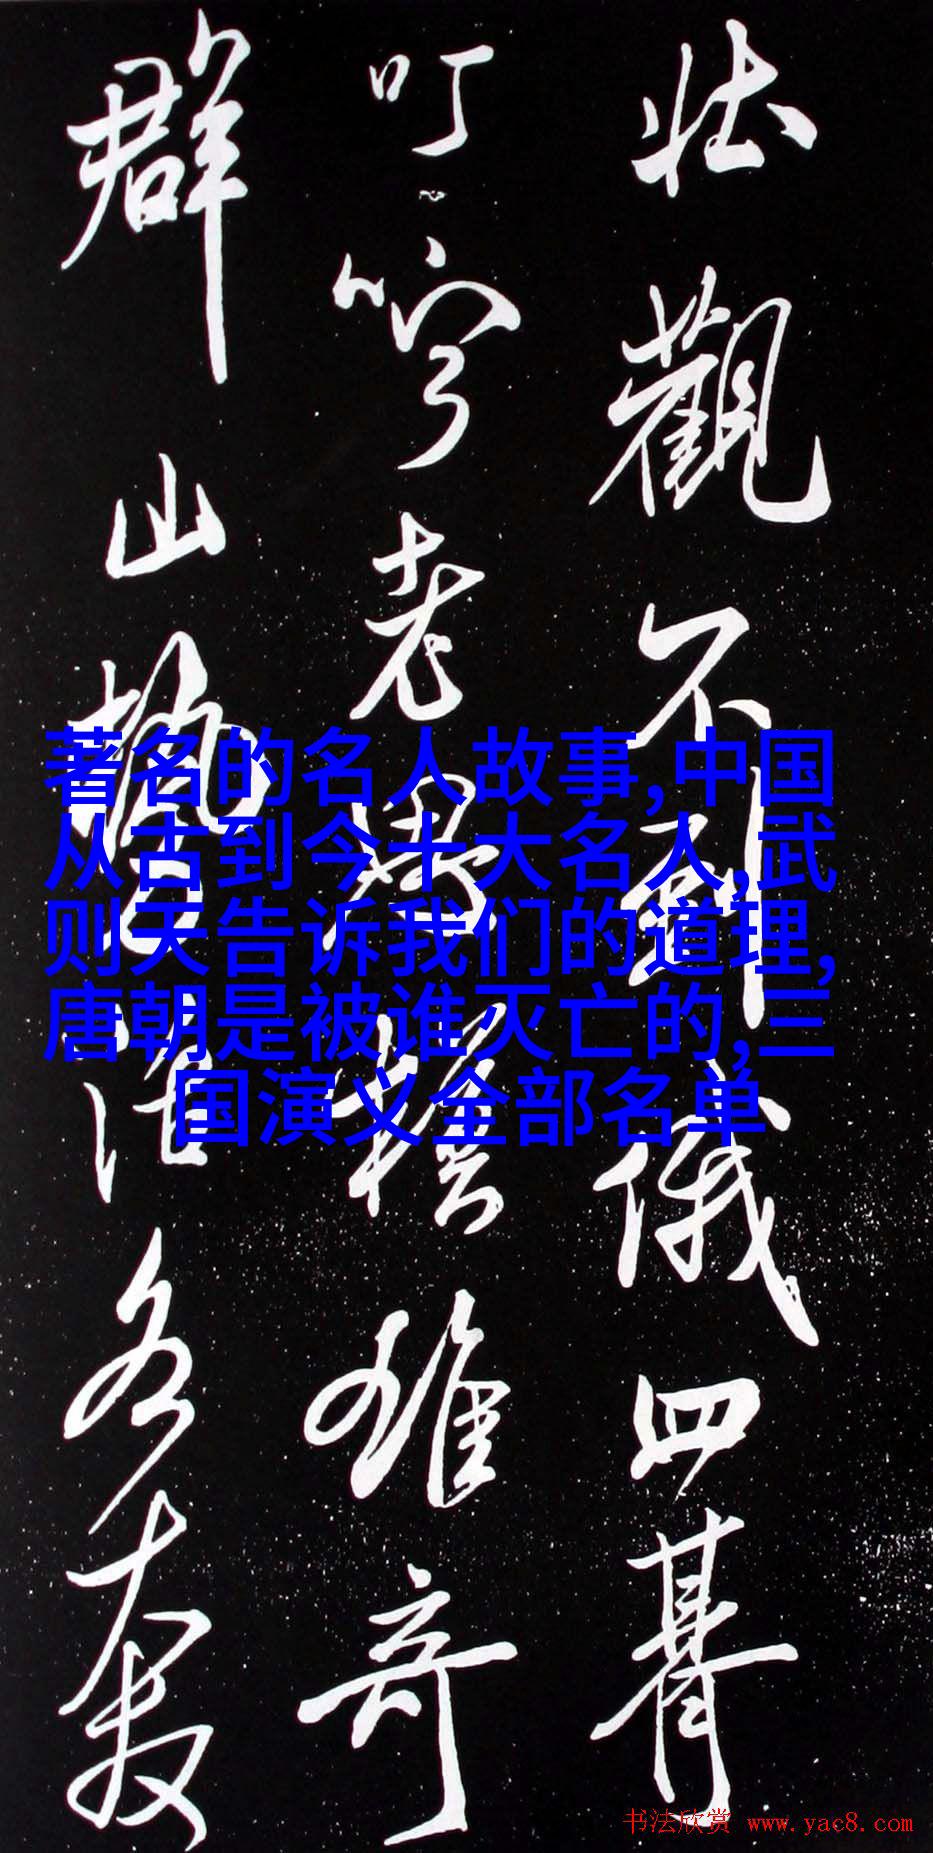 壯觀不到四
叮嚀老雄奇
群山各
著名的名人故事,中国
从古到今十大名人,武
则天告诉我们的道理,
唐朝是被谁灭亡的,三
国演义全部名单
书法欣赏 www.yac8.com